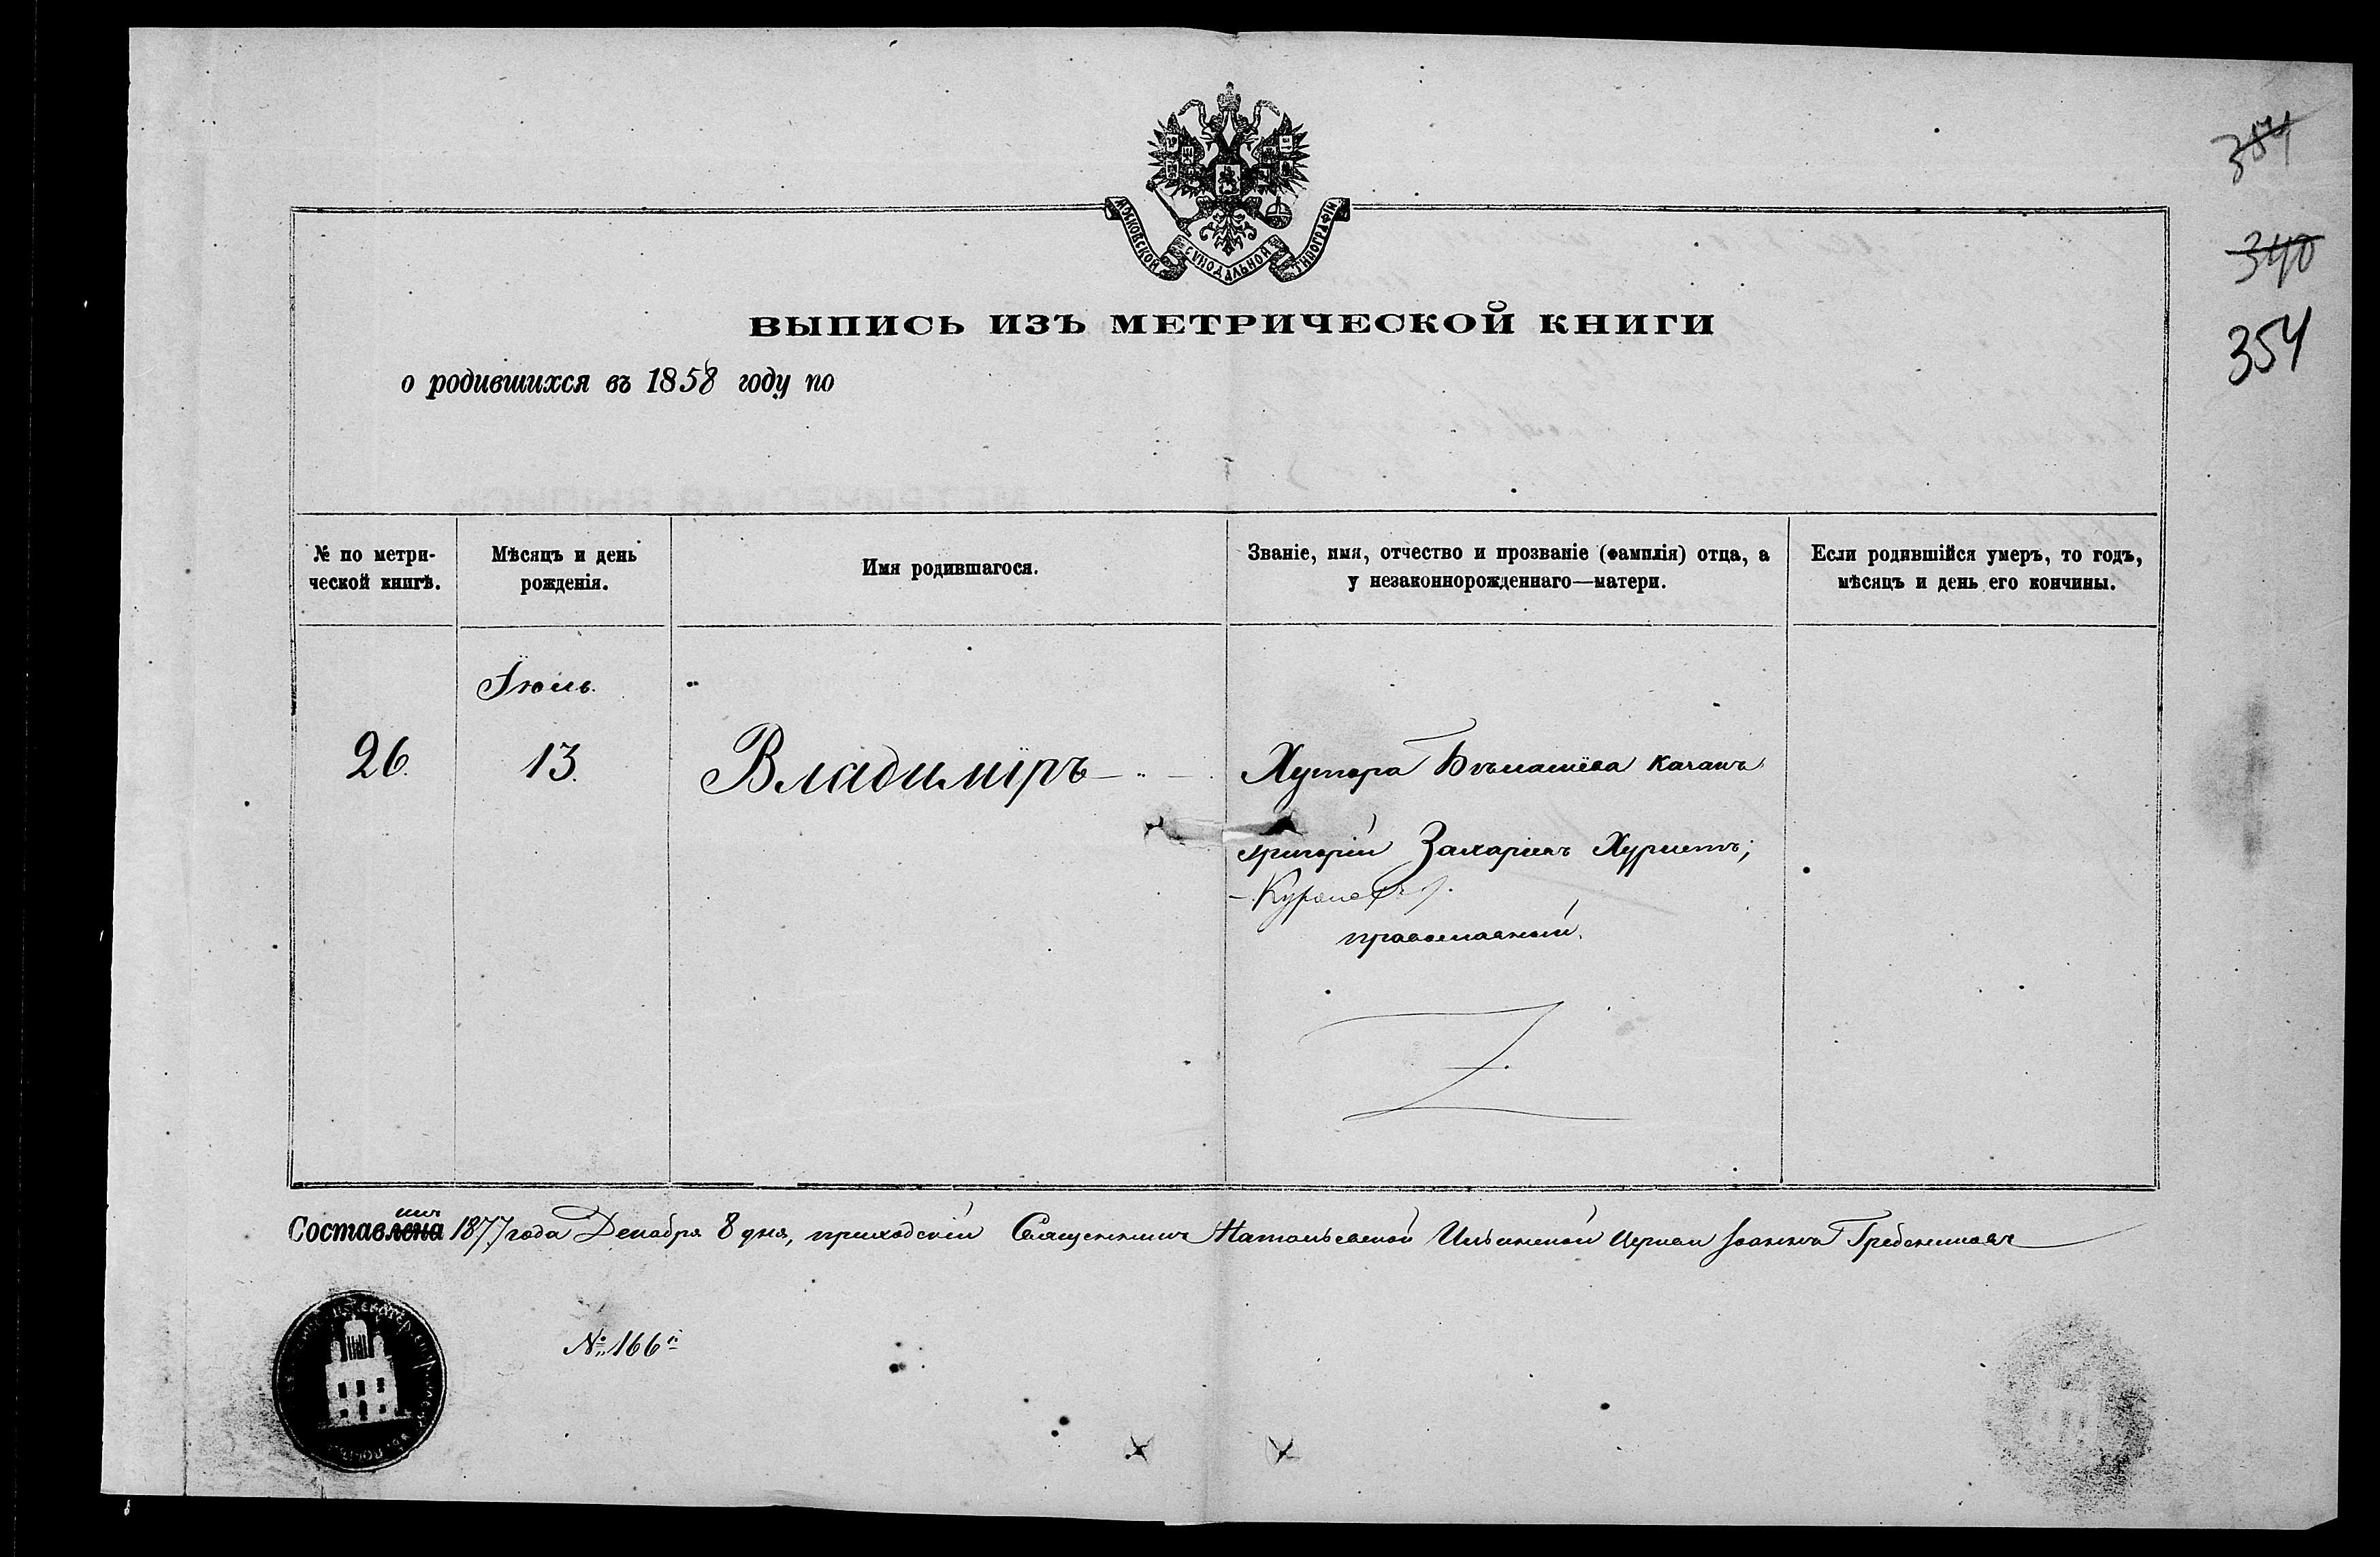 384
340
354
МОСКОВСКОЙ СѴНОДАЛЬНОЙ ТИПОГРАФІИ
ВЫПИСЬ ИЗЪ МЕТРИЧЕСКОЙ КНИГИ
о родившихся въ 1858 году по
№ по метри-
ческой книгѣ.
Мѣсяцъ и день
рожденія.
Имя родившагося.
Званіе, имя, отчество и прозваніе (фамилія) отца, а
у незаконнорожденнаго—матери.
Если родившійся умеръ, то годъ,
мѣсяцъ и день его кончины.
Іюль.
26. 13. Владиміръ Хутора казакъ
Григорій Захаріевъ
православный.
Составлена 1877 года Декабря 8 дня, приходскій Священникъ Ильинской церкви Іоаннъ Гребенниковъ
№ 166й